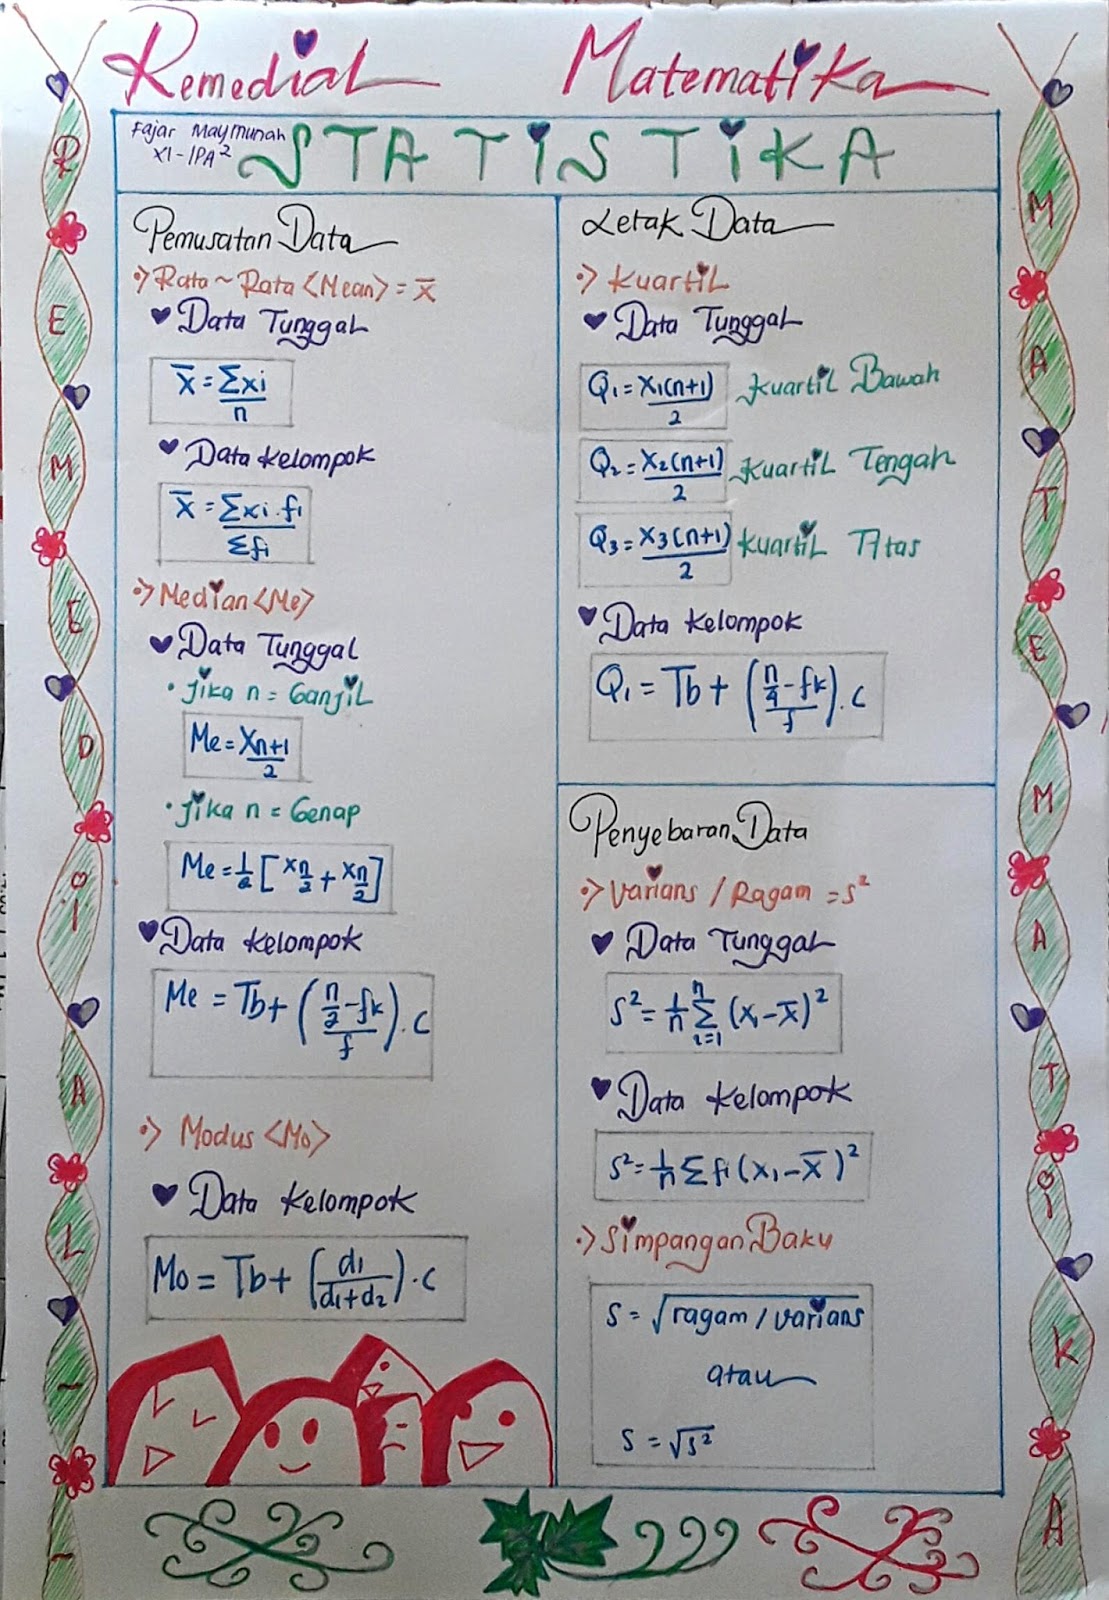 Remedial Matematika
Fajar Maymunah
XI-IPA²
STATISTIKA
Pemusatan Data
Rata~Rata <Mean> = x̅
Data Tunggal
x̅ = Σxi/n
Data Kelompok
x̅ = Σxi.fi/Σfi
Median <Me>
Data Tunggal
• Jika n = Ganjil
Me = Xn+1/2
• Jika n = Genap
Me = 1/2 [xn/2 + xn/2]
Data Kelompok
Me = Tb + (n/2 - fk / f) . c
Modus <Mo>
Data Kelompok
Mo = Tb + (d1/d1+d2) . c
Letak Data
Kuartil
Data Tunggal
Q1 = X1(n+1)/2 Kuartil Bawah
Q2 = X2(n+1)/2 Kuartil Tengah
Q3 = X3(n+1)/2 Kuartil Atas
Data Kelompok
Q1 = Tb + (n/4 - fk / f) . c
Penyebaran Data
Varians / Ragam = s²
Data Tunggal
S² = 1/n nΣi=1 (x1 - x̅)²
Data Kelompok
S² = 1/n Σ fi (x1 - x̅)²
Simpangan Baku
s = √ragam / varians
atau
s = √s²
REMEDIAL--
MATEMATIKA